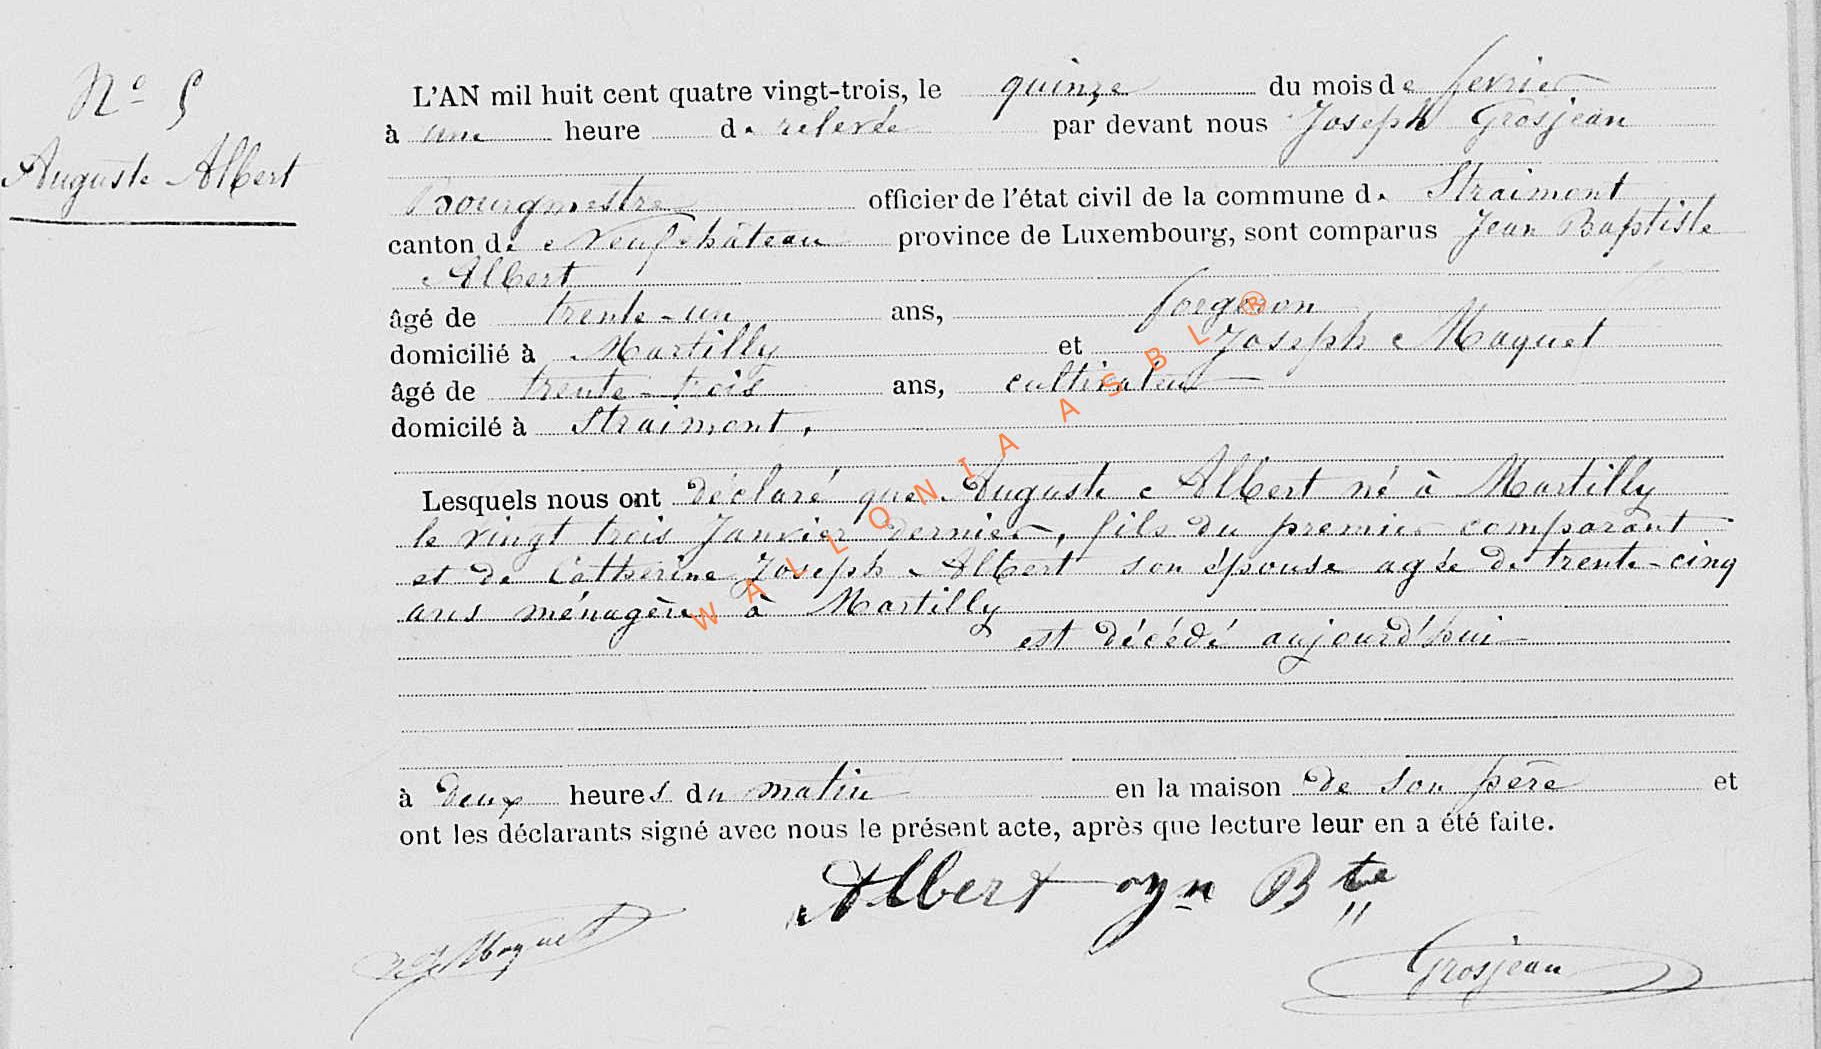 N° 5
Auguste Albert
L'AN mil huit cent quatre vingt-trois, le quinze du mois de fevrier
à une heure de relevée par devant nous Joseph Grosjean
Bourgmestre officier de l'état civil de la commune de Straimont
canton de Neufchâteau province de Luxembourg, sont comparus Jean Baptiste
Albert
âgé de trente-un ans, forgeron
domicilié à Martilly et Joseph Maquet
âgé de trente-trois ans, cultivateur
domicilé à Straimont,
Lesquels nous ont déclaré que Auguste Albert né à Martilly
le vingt trois Janvier dernier, fils du premier comparant
et de Cathérine Joseph Albert son épouse agée de trente-cinq
ans ménagère à Martilly
est décédé aujourd'hui
à deux heures du matin en la maison de son père et
ont les déclarants signé avec nous le présent acte, après que lecture leur en a été faite.
Albert Bte
Maquet
Grosjean
WALLONIA ASBL ®